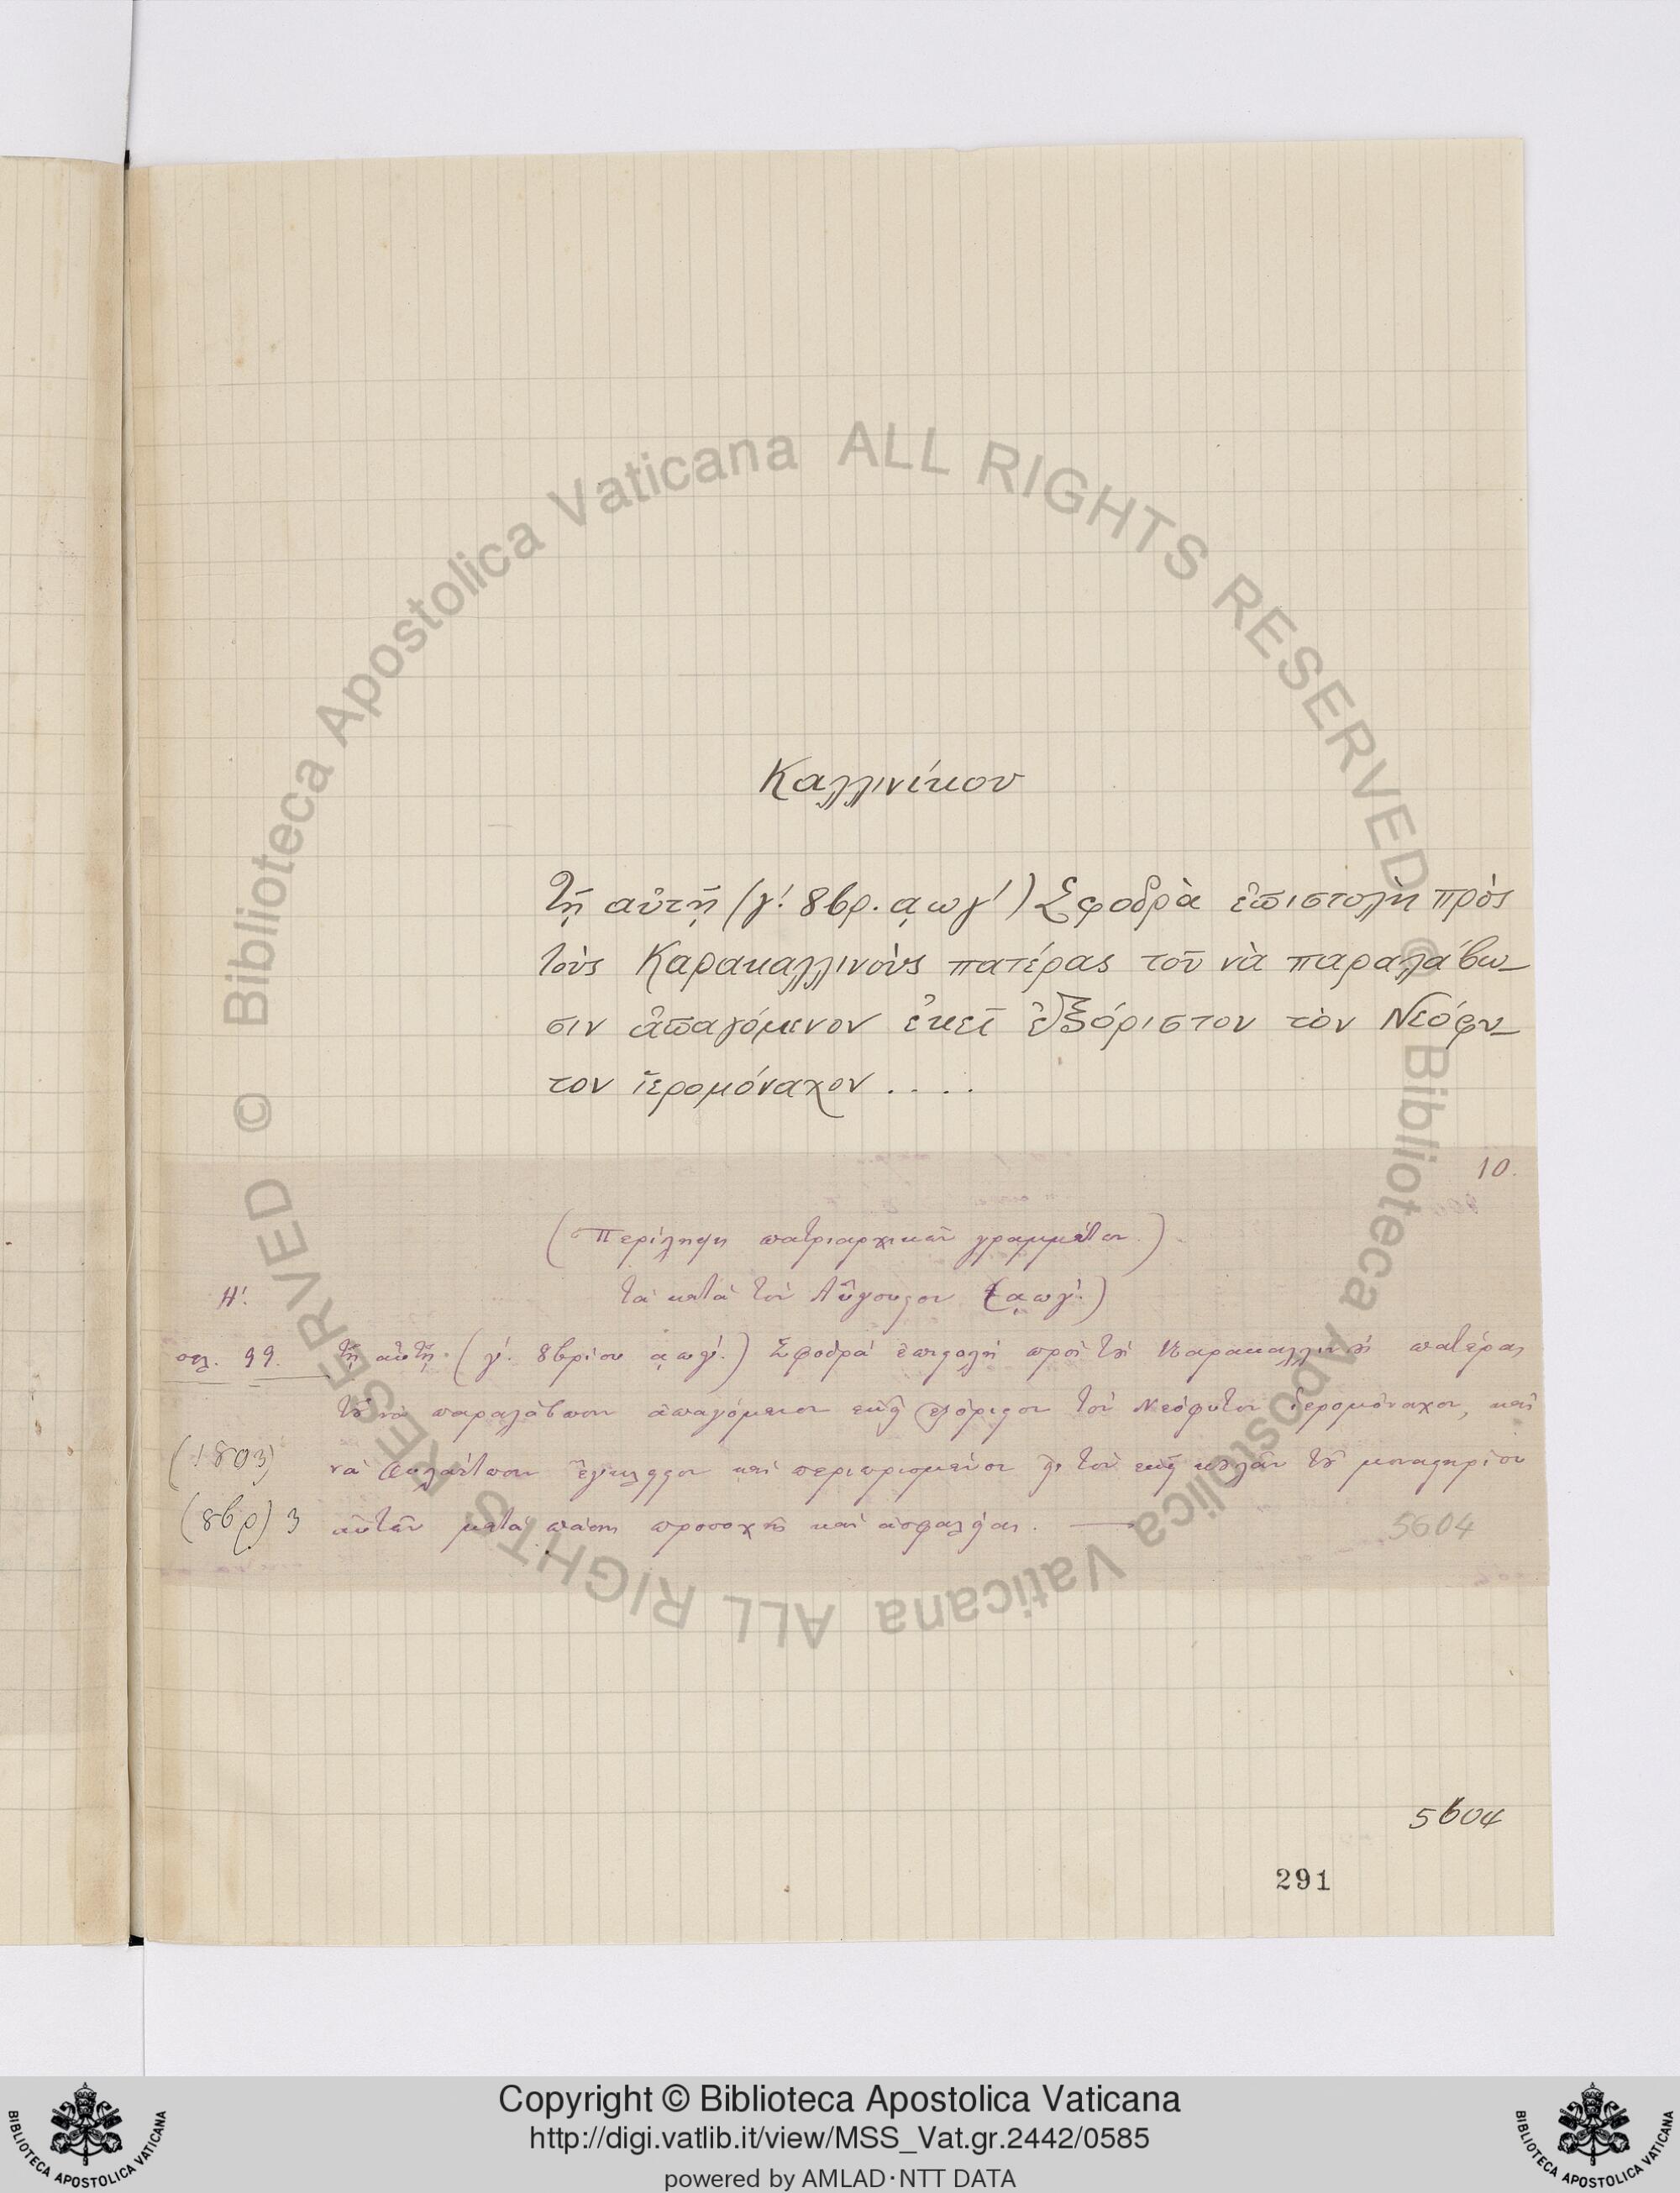 Καλλινίκου
Τῇ αὐτῇ (γ'. 8βρ. ͵αωγ') Σφοδρὰ ἐπιστολὴ πρὸς
τοὺς Καρακαλλινοὺς πατέρας τοῦ νὰ παραλάβω–
σιν ἀπαγόμενον ἐκεῖ ἐξόριστον τὸν Νεόφυ–
τον ἱερομόναχον . . . .
10.
(Περίληψη πατριαρχικῶν γραμμάτων.)
Η'. τὰ κατὰ τὸν Αὔγουστον (͵αωγ'.)
σελ. 99. τῇ αὐτῇ. (γ'. 8βρίου ͵αωγ'.) Σφοδρὰ ἐπιστολὴ πρὸς τοὺς Καρακαλλινοὺς πατέρας
τοῦ νὰ παραλάβωσιν ἀπαγόμενον ἐκεῖ ἐξόριστον τὸν Νεόφυτον ἱερομόναχον, καὶ
(1803) νὰ φυλάττωσιν ἔγκλειστον καὶ περιωρισμένον τοῦ μοναστηρίου
(8βρ) 3 αὐτῶν μετὰ πάσης προσοχῆς καὶ ἀσφαλείας. —
5604
5604
291
© Biblioteca Apostolica Vaticana ALL RIGHTS RESERVED
© Biblioteca Apostolica Vaticana ALL RIGHTS RESERVED
Copyright © Biblioteca Apostolica Vaticana
http://digi.vatlib.it/view/MSS_Vat.gr.2442/0585
powered by AMLAD·NTT DATA
BIBLIOTECA APOSTOLICA VATICANA
BIBLIOTECA APOSTOLICA VATICANA